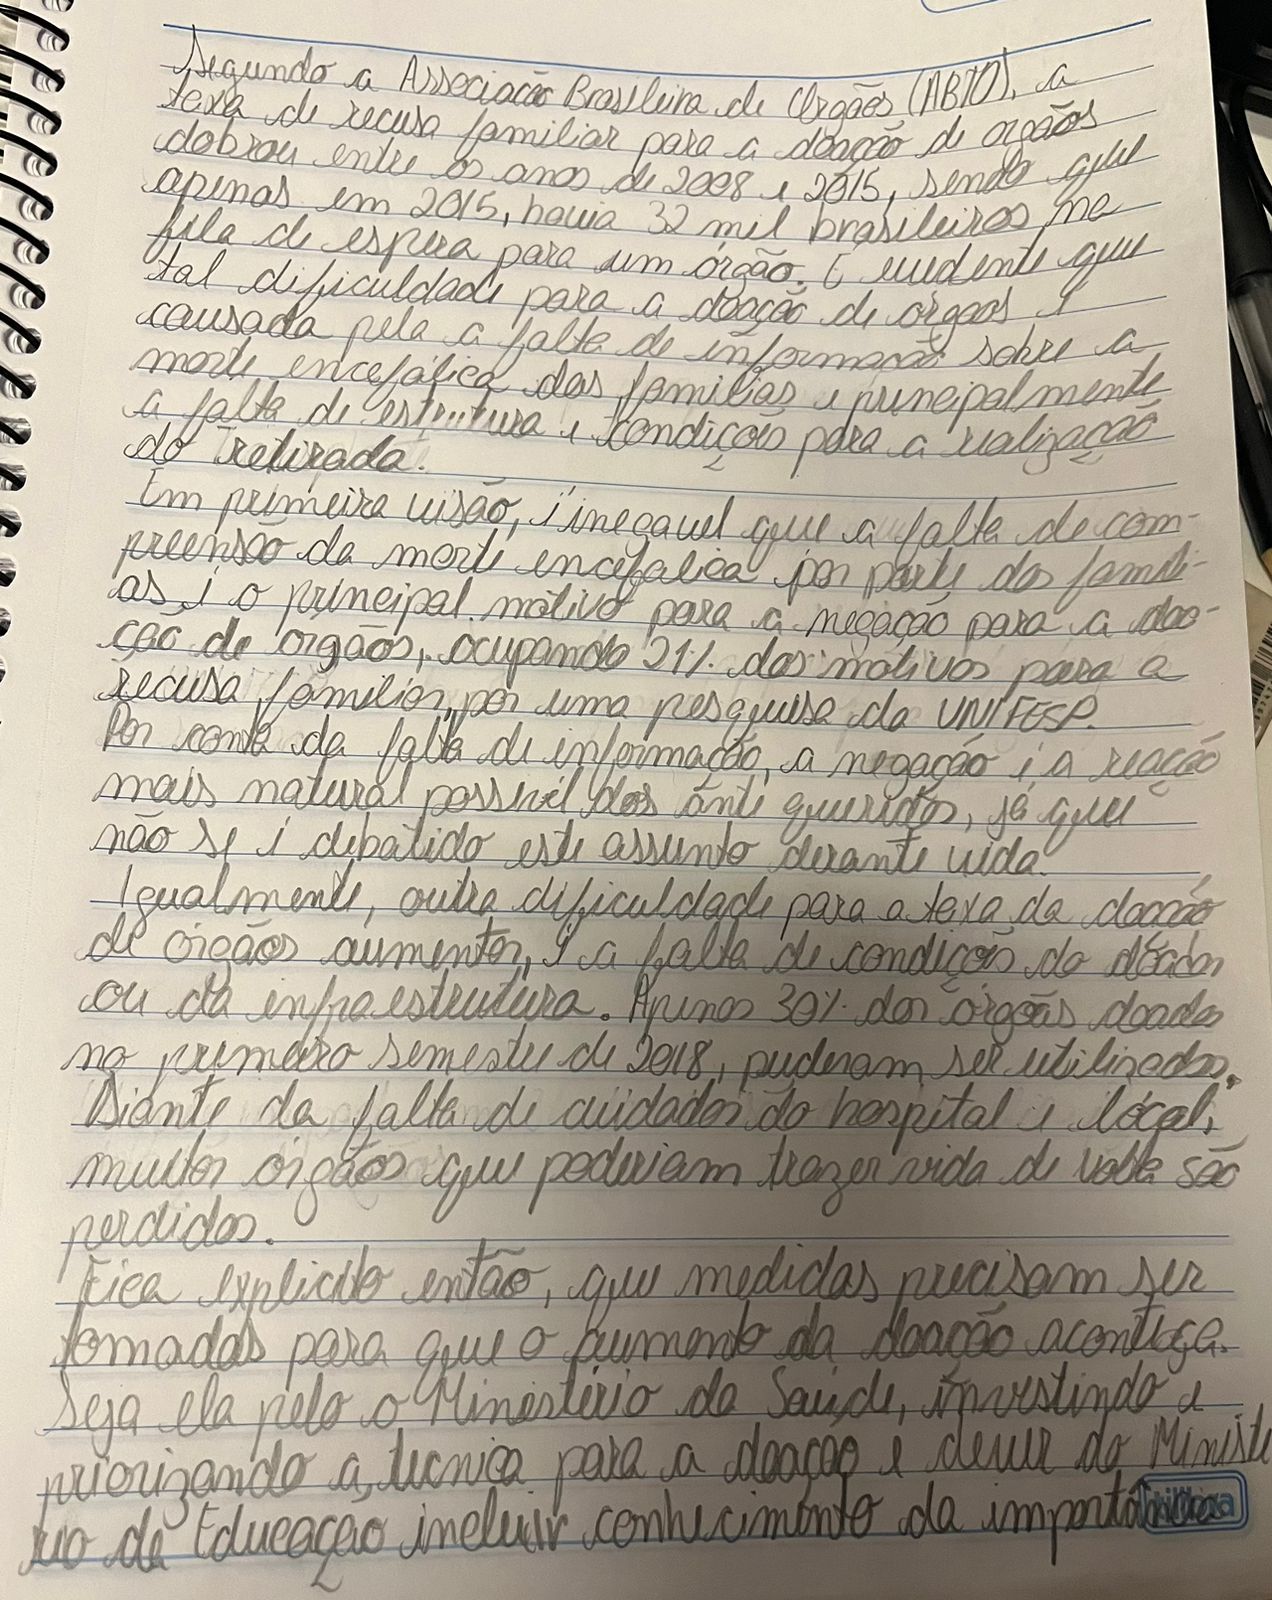 Segundo a Associação Brasileira de Orgãos (ABTO), a
texa de recusa familiar para a doação de orgãos
dobrou entre os anos de 2008 e 2015, sendo que
apenas em 2015, havia 32 mil brasileiros na
fila de espera para um órgão. É evidente que
tal dificuldade para a doação de orgãos é
causada pela a falta de informação sobre a
morte encefálica das famílias e principalmente
a falta de estrutura e condições para a realização
do retirada.
Em primeira visão, é inegavel que a falta de com-
preensão da morte encefalica por parte das famili-
as é o principal motivo para a negação para a doa-
ção de orgãos, ocupando 21% dos motivos para a
recusa familiar, por uma pesquisa da UNIFESP.
Por conta da falta de informação, a negação é a reação
mais natural possivel dos ânte queridos, já que
não se é debatido este assunto derante vida.
Igualmente, outra dificuldade para a texa da doação
de orgãos aumentar, é a falta de condições do doador
ou da infraestrutura. Apenas 30% dos órgãos doados
no primeiro semestre de 2018, puderam ser utilizados.
Diante da falta de cuidados do hospital e local,
muitos órgãos que poderiam trazer vida de volta são
perdidos.
Fica explicito então, que medidas precisam ser
tomadas para que o aumento da doação aconteça.
Seja ela pelo o Ministério da Saúde, investindo e
priorizando a técnica para a doação e dever do Ministé
rio da Educação incluir conhecimento da importância
tilibra